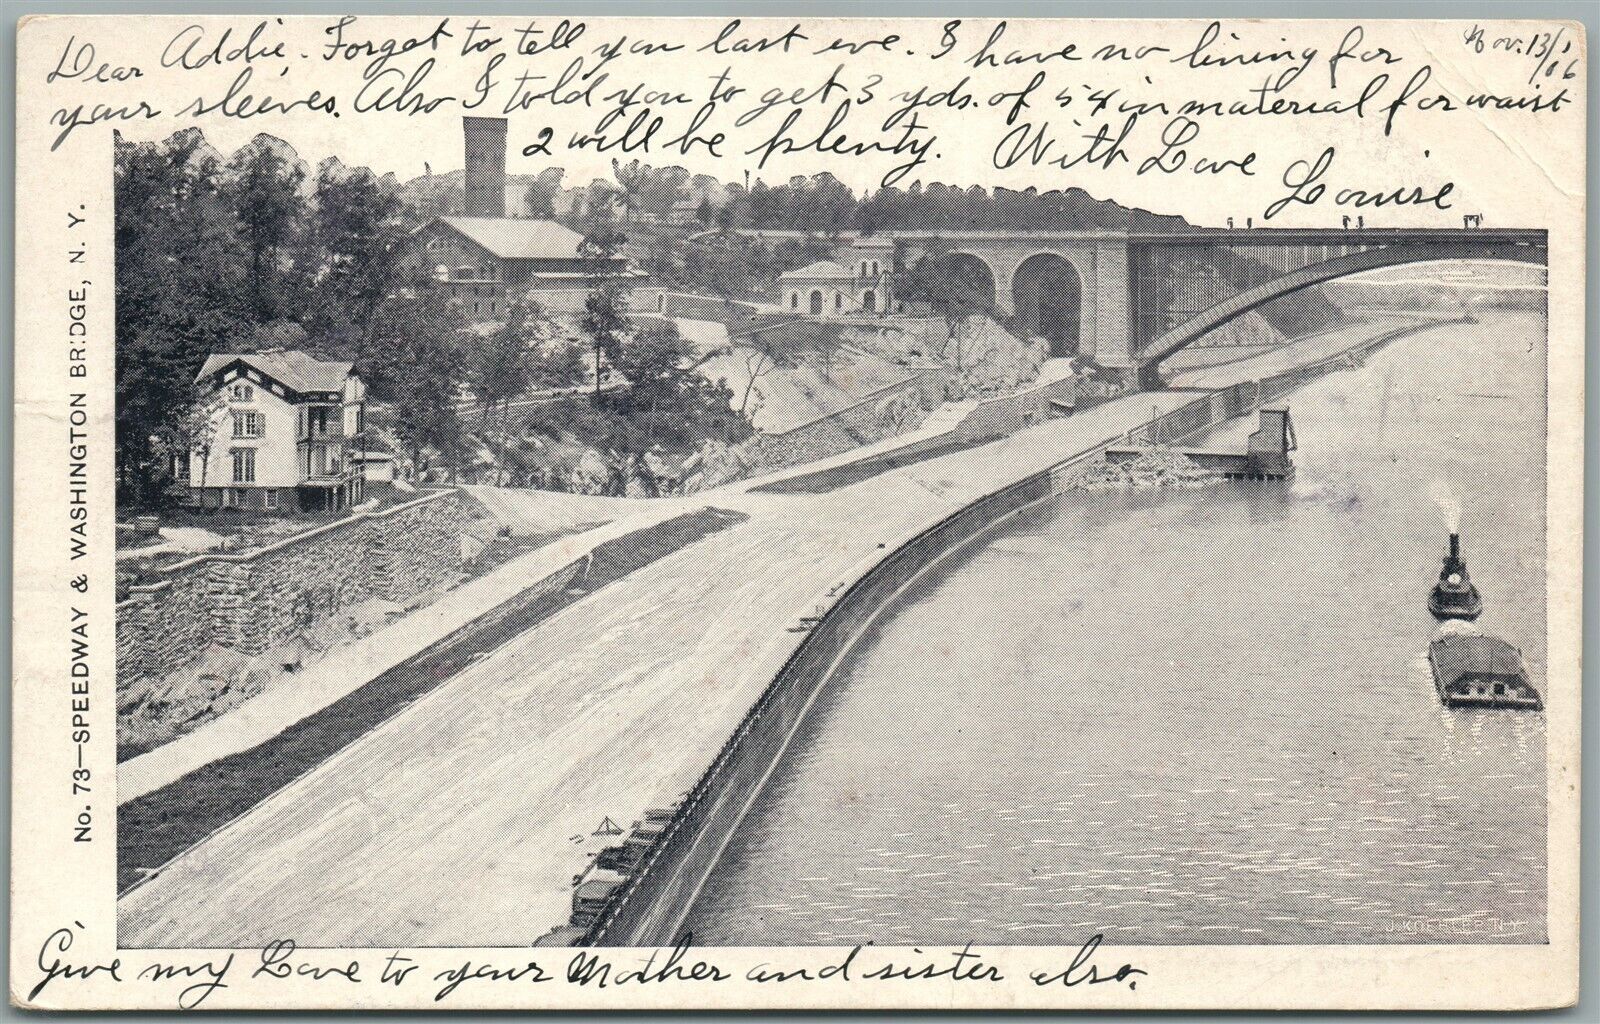 Nov. 13/06
Dear Addie. Forgot to tell you last eve. I have no lining for
your sleeves. Also I told you to get 3 yds. of 54 in material for waist
2 will be plenty. With Love
Louise
No. 73—SPEEDWAY & WASHINGTON BRIDGE, N. Y.
J. KOEHLER N.Y.
Give my Love to your Mother and sister also.